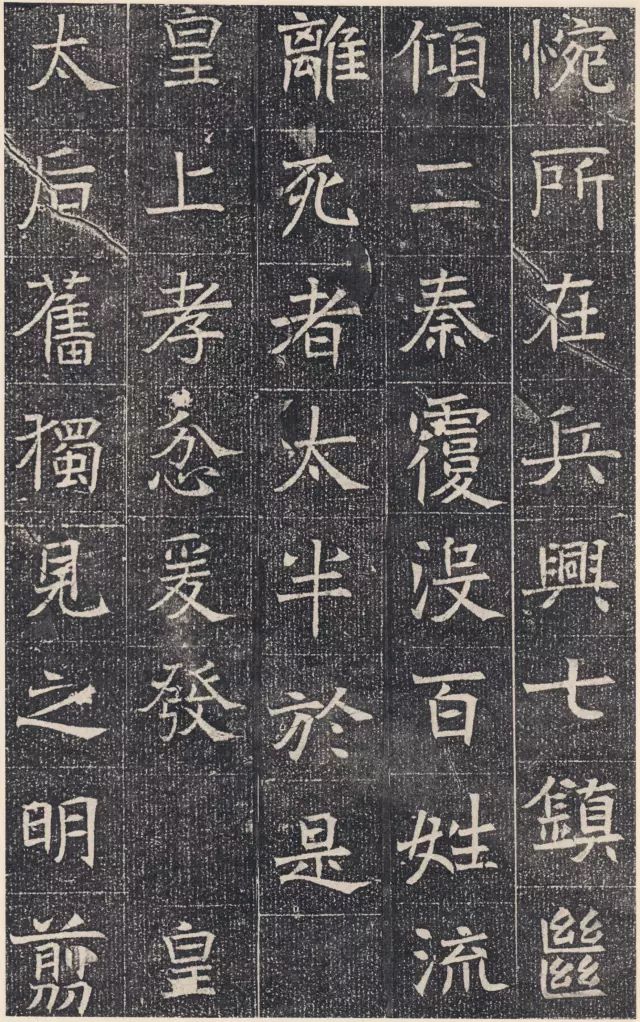 惋所在兵興七鎮㡭
傾二秦覆没百姓流
離死者太半於是
皇上孝忿爰發　皇
太后奮獨見之明剪